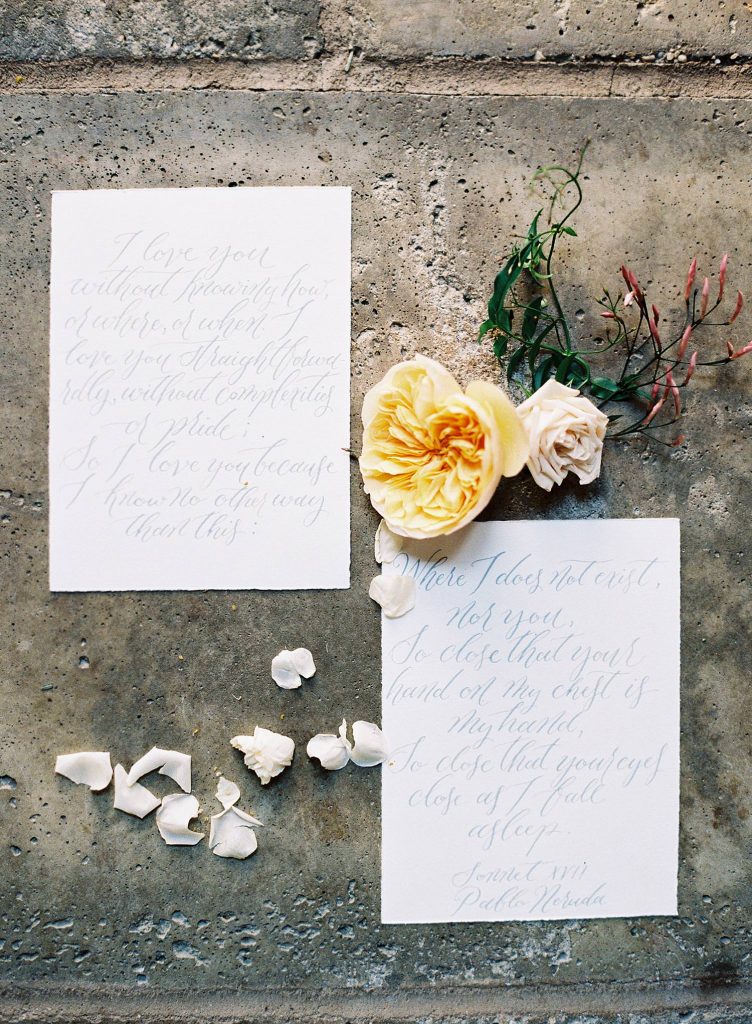 I love you
without knowing how,
or where, or when I
love you straightforwa-
rdly, without complexities
or pride;
So I love you because
I know no other way
than this:
Where I does not exist,
nor you,
So close that your
hand on my chest is
my hand,
So close that your eyes
close as I fall
asleep.
Sonnet XVII
Pablo Neruda